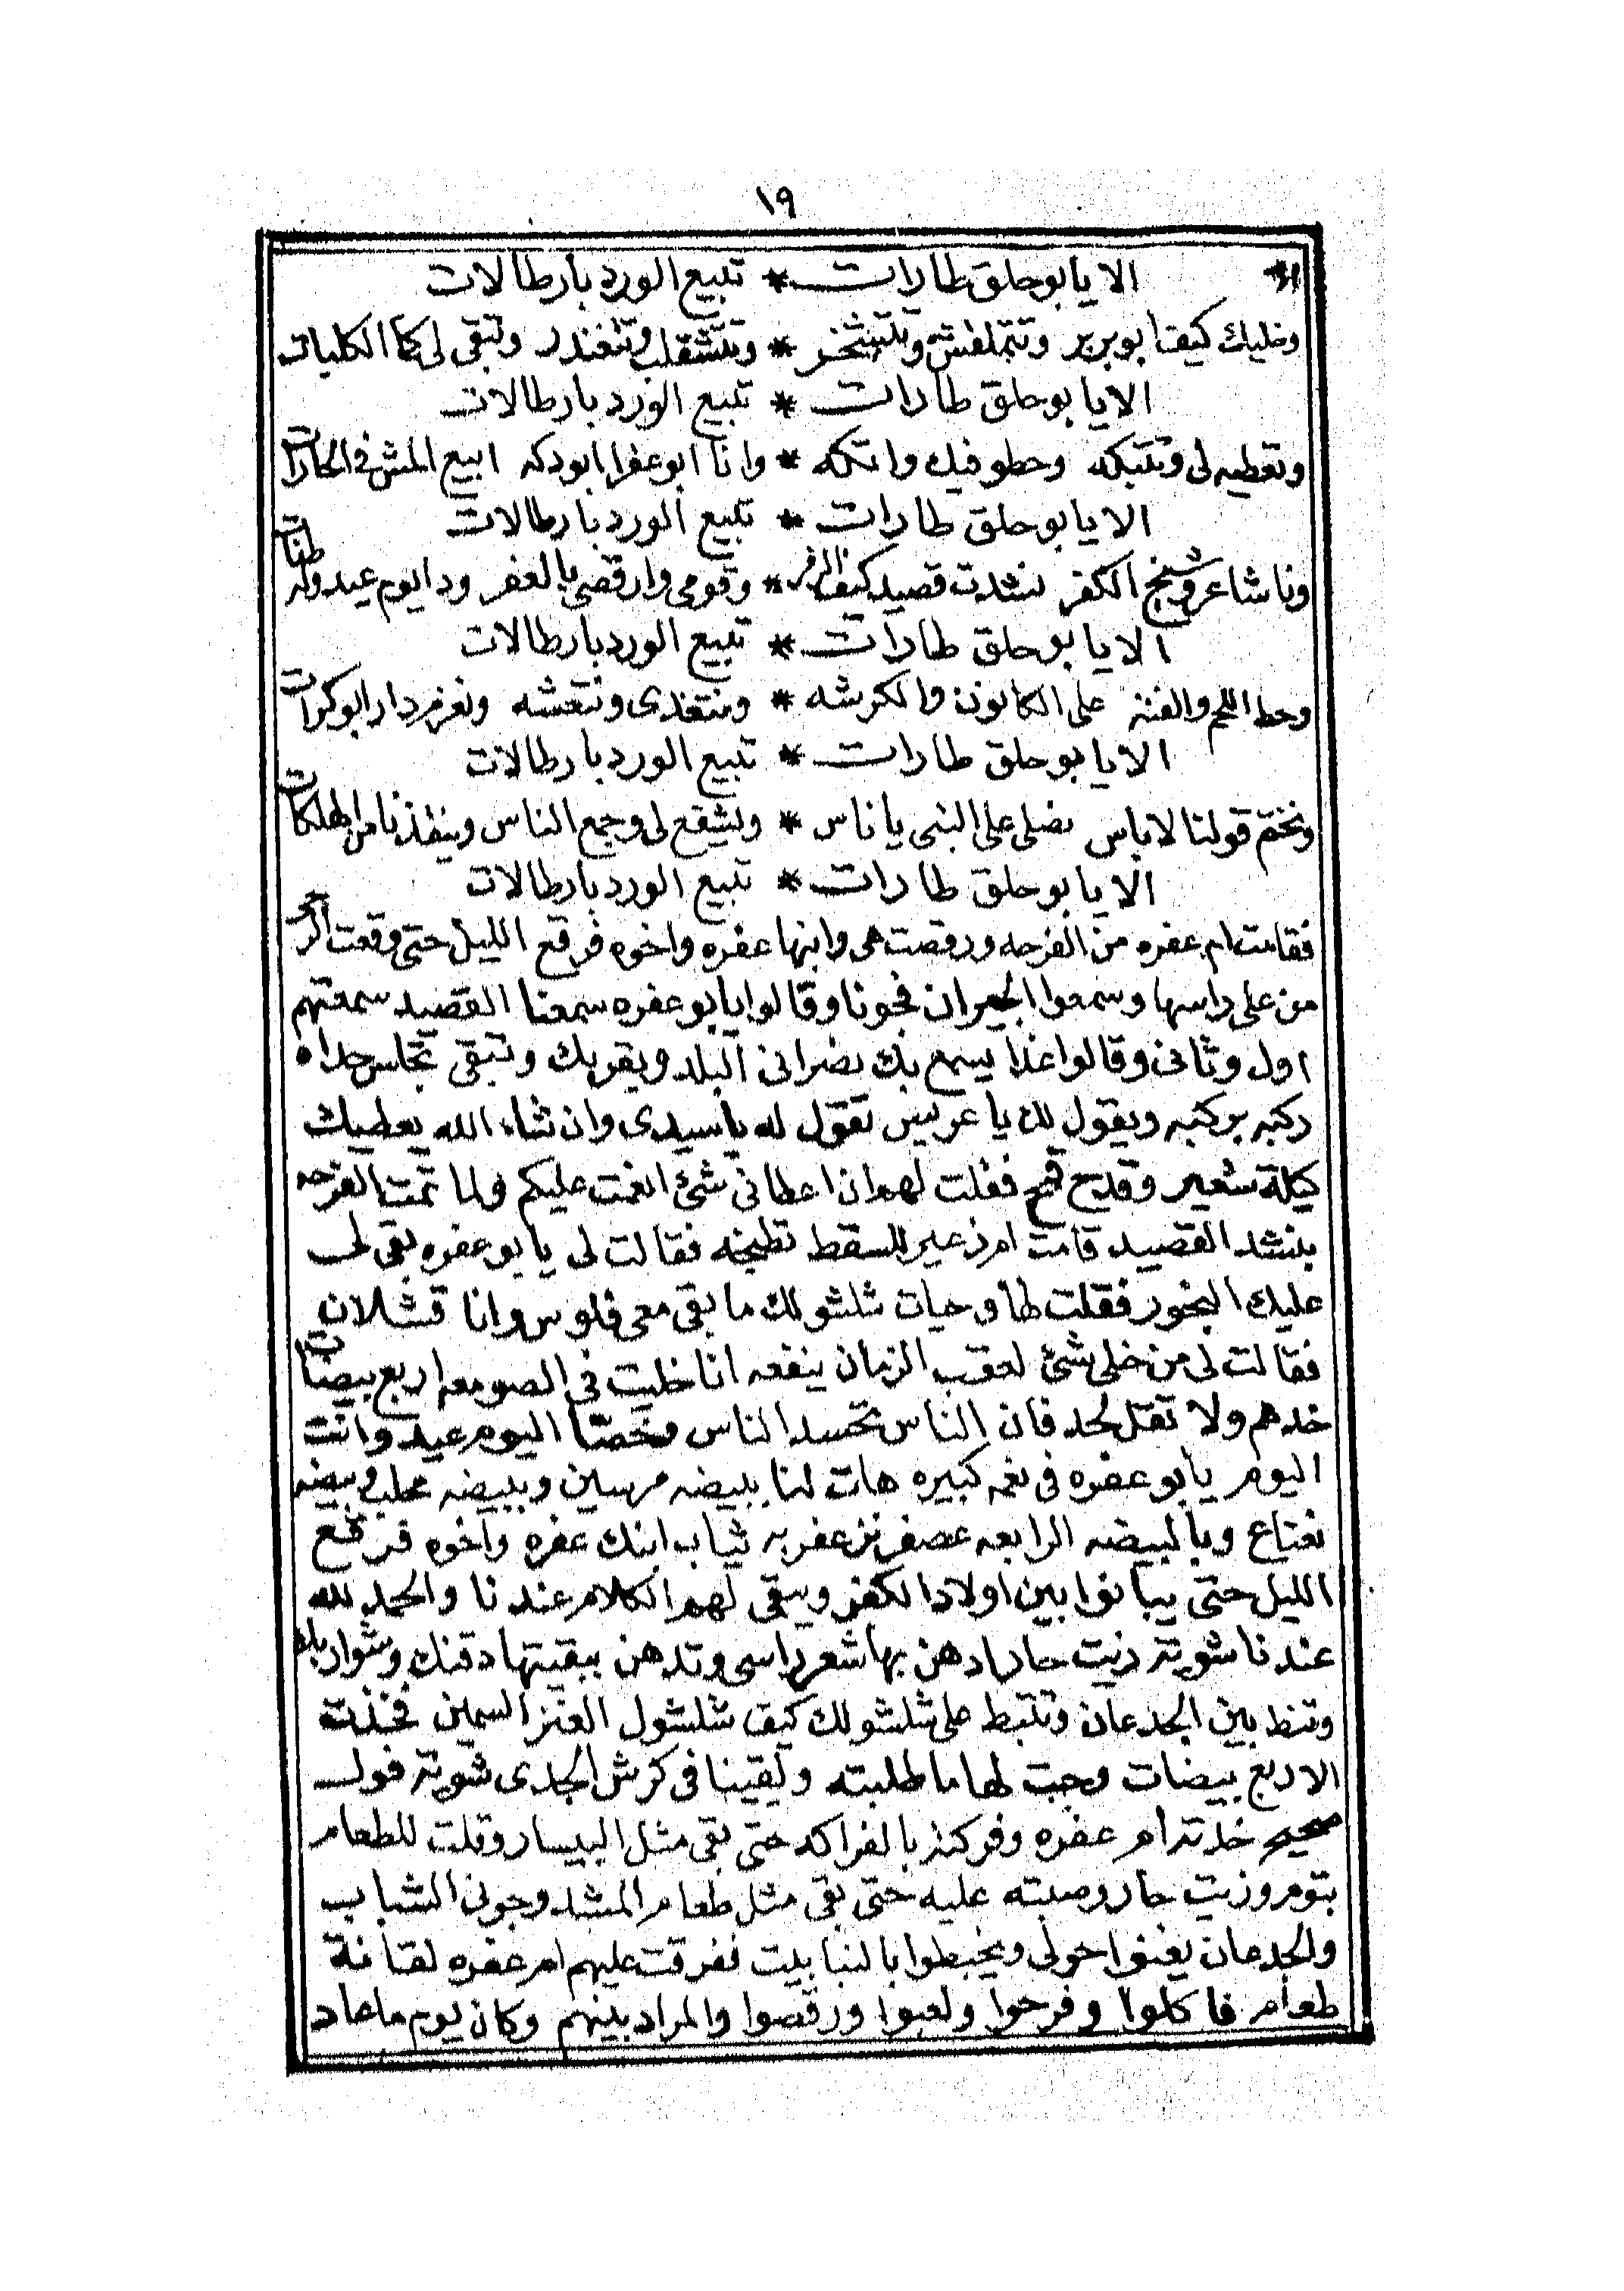 ١٩
الا يابو حلق طارات * تبيع الورد بارطالات
وخليك كيف ابو برير وتتملفش وتتشخر * وتتشقلب وتتغندر وتبقى لى كما الكلبات
الا يابو حلق طارات * تبيع الورد بارطالات
وتعطيه لى وتتبكه وحطو فيك واتكه * وانا ابو عفرا ابو دكه ابيع المش فى الحارات
الا يابو حلق طارات * تبيع الورد بارطالات
ونا شاعر وشيخ الكفر ننشدت قصيد كيف * وقومى وارقصى يا العفر ودا يوم عيد وله طنات
الا يابو حلق طارات * تبيع الورد بارطالات
وحط اللحم والفته على الكانون والكرشه * ونتغذى ونتعشه ونعزم دار ابو كرات
الا يابو حلق طارات * تبيع الورد بارطالات
ونختم قولنا لا باس نصلى على النبى يا ناس * ويشفع لى وجمع الناس وينقذنا من الهلكات
الا يابو حلق طارات * تبيع الورد بارطالات
فقامت ام عفره من الفرحه ورقصت هى وابنها عفره واخوه فرقع الليل حتى وقعت
من على راسها وسمعوا الجيران فجونا وقالوا يابو عفره سمعنا القصيد سمعتهم
اول وثانى وقالوا غدا يسمع بك نصرانى البلد ويقربك وتبقى تجلس حداه
ركبه بركبه ويقول لك يا عريس تقول له يا سيدى وان شاء الله يعطيك
كيلة شعير وقدح قمح فقلت لهم ان اعطانى شئ انعمت عليكم ولما تمت الفرحه
بنشد القصيد قامت ام زعير للسقط تطبخه فقالت لى يا بو عفره بقى لحـ
عليك البخور فقلت لها وحيات شلشولك ما بقى معى فلوس وانا قشلان
فقالت لى من خلى شئ لعقب الزمان ينفعه انا خليت فى الصومعه اربع بيضات
خدهم ولا تقل لحد فان الناس تحسد الناس وخصتا اليوم عيد وانت
اليوم يا بو عفره فى نعمه كبيره هات لنا ببيضه مرسين وببيضه محلب وببيضه
نعناع وبالبيضه الرابعه عصفر نزعفر به ثياب ابنك عفره واخوه فرقع
الليل حتى يبانوا بين اولاد الكفر ويبقى لهم الكلام عندنا والحمد لله
عندنا شوية زيت حار ادهن بها شعر راسى وتدهن ببقيتها دقنك وشواربك
وتنط بين الجدعان وتتبط على شلشولك كيف شلشول العنز السمين فخذت
الاربع بيضات وجبت لها ما طلبته ولقينا فى كرش الجدى شوية فول
صحيح خدته ام عفره وفركته بالفراكه حتى بقى مثل البيسار وقلت للطعام
بتوم وزيت حار وصبته عليه حتى بقى مثل طعام المشد وجونى الشباب
والجدعان يغنوا حولى ويخبطوا بالنبابيت ففرقت عليهم ام عفره لقانة
طعام فاكلوا وفرحوا ولعبوا ورقصوا والمراد بينهم وكان يوم ما عاد